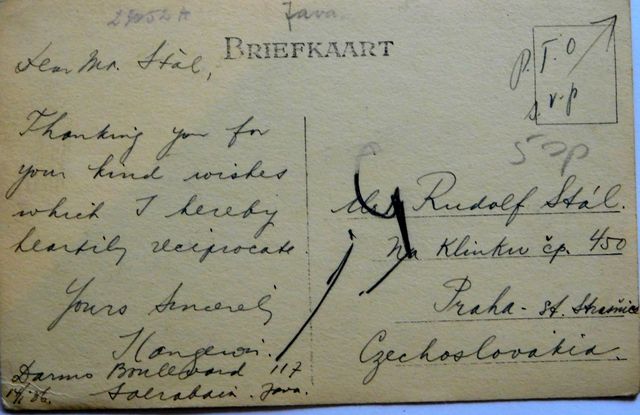 29052A
Java.
BRIEFKAART
P.T.O
s.v.p
Dear Mr. Stál,
Thanking you for
your kind wishes
which I hereby
heartily reciprocate.
Yours Sincerely
Darmo Boulevard 117
Soerabaia. Java.
Rudolf Stál.
Na Klinku čp. 450
Praha - st. Strašnice
Czechoslovakia.